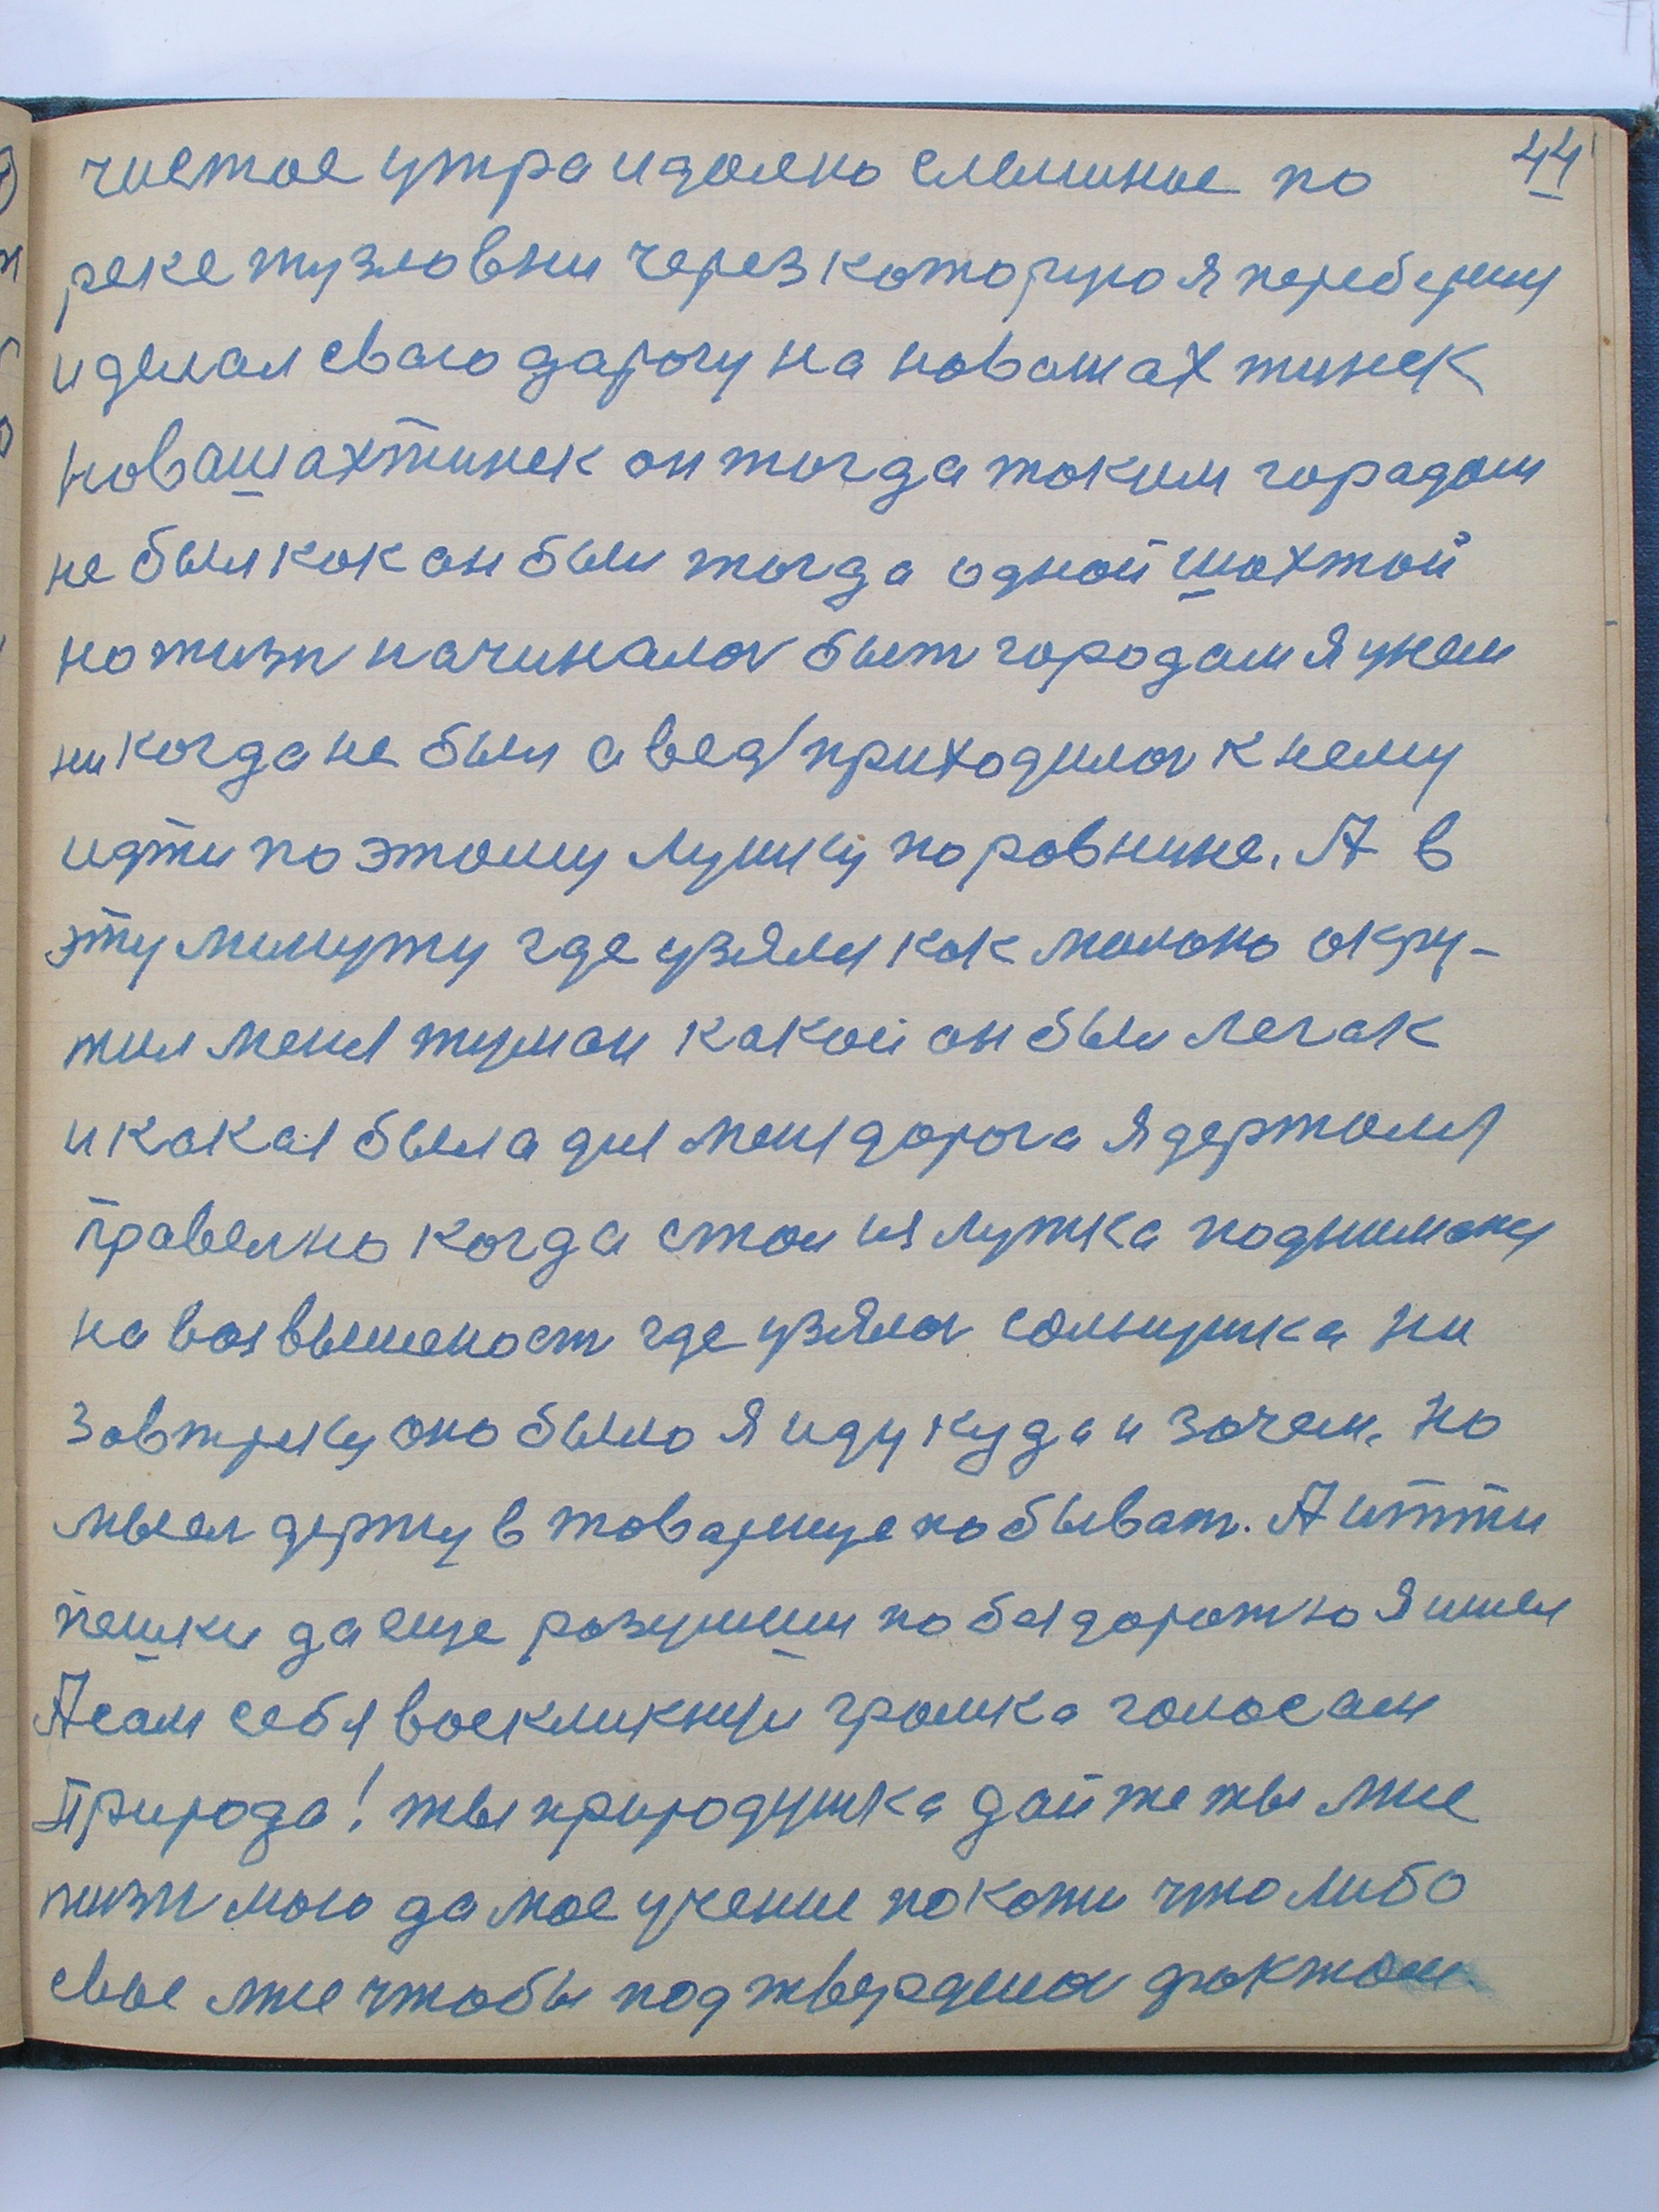 44
чистое утра и долно слышное по
реке тузловни через которую я перебериу
и делал сваю дарогу на новашахтинск
Новашахтинск он тогда токим горадом
не был как он был тогда одной шахтой
но жизн начиналась быт городам я у нем
никогда не был а вед приходилось к нему
идти по этому лушку по ровнине. А в
эту минуту где узялся как молоко окру-
жил меня туман какой он был легак
и какая была для меня дорога я держался
правелно когда стал из лужка поднимат
на возвышеност где узялось солнушка ни
завтреку оно было я иду куда и зачем. Но
мысл держу в товарище побыват. А итти
пешки да еще розувши по бездорожю я шел
А сам себя воскликнул громка голосам
Природа! ты природушка дай же ты мне
жизн мою да мое учение покожи что либо
свое мне чтобы подтвердилось фактом.